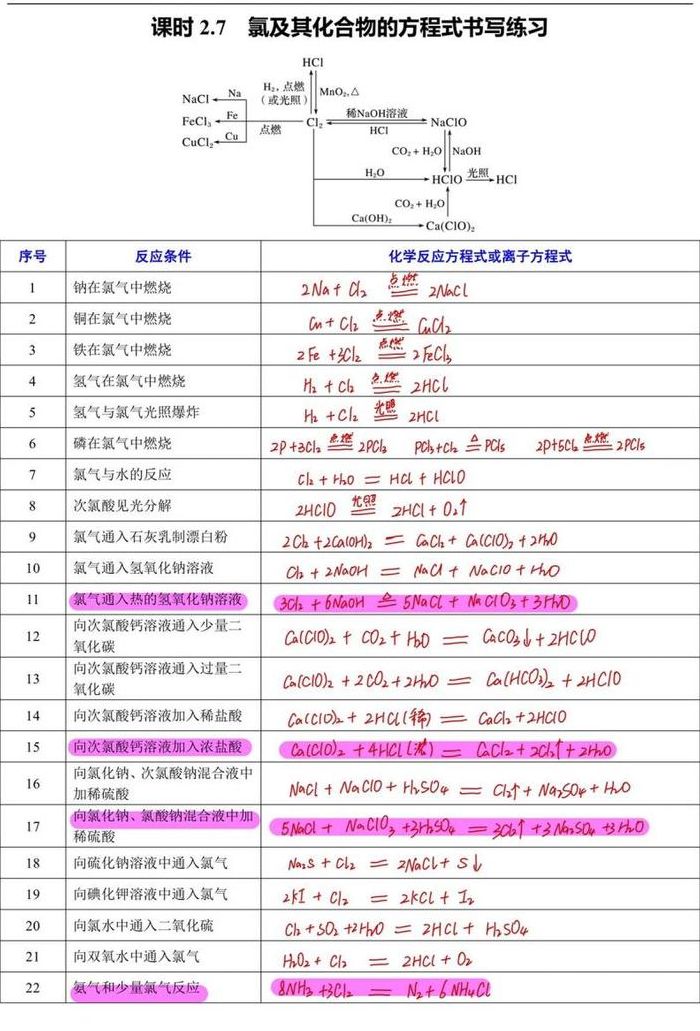 课时 2.7 氯及其化合物的方程式书写练习
HCl
H₂, 点燃
(或光照)
MnO₂,△
NaCl Na
FeCl₃ Fe
CuCl₂ Cu
点燃
Cl₂
稀NaOH溶液
HCl
NaClO
CO₂ + H₂O NaOH
H₂O
HClO 光照 HCl
CO₂ + H₂O
Ca(OH)₂
Ca(ClO)₂
序号 反应条件 化学反应方程式或离子方程式
1 钠在氯气中燃烧 2Na + Cl₂ 点燃 == 2NaCl
2 铜在氯气中燃烧 Cu + Cl₂ 点燃 == CuCl₂
3 铁在氯气中燃烧 2Fe +3Cl₂ 点燃 == 2FeCl₃
4 氢气在氯气中燃烧 H₂ + Cl₂ 点燃 == 2HCl
5 氢气与氯气光照爆炸 H₂ + Cl₂ 光照 == 2HCl
6 磷在氯气中燃烧 2P+3Cl₂ 点燃 == 2PCl₃ PCl₃+Cl₂ △ == PCl₅ 2P+5Cl₂ 点燃 == 2PCl₅
7 氯气与水的反应 Cl₂ + H₂O == HCl + HClO
8 次氯酸见光分解 2HClO 光照 == 2HCl + O₂↑
9 氯气通入石灰乳制漂白粉 2Cl₂ +2Ca(OH)₂ == CaCl₂ + Ca(ClO)₂ + 2H₂O
10 氯气通入氢氧化钠溶液 Cl₂ + 2NaOH == NaCl + NaClO + H₂O
11 氯气通入热的氢氧化钠溶液 3Cl₂ + 6NaOH △ == 5NaCl + NaClO₃ + 3H₂O
12 向次氯酸钙溶液通入少量二
氧化碳 Ca(ClO)₂ + CO₂ + H₂O == CaCO₃↓ + 2HClO
13 向次氯酸钙溶液通入过量二
氧化碳 Ca(ClO)₂ + 2CO₂ + 2H₂O == Ca(HCO₃)₂ + 2HClO
14 向次氯酸钙溶液加入稀盐酸 Ca(ClO)₂ + 2HCl(稀) == CaCl₂ + 2HClO
15 向次氯酸钙溶液加入浓盐酸 Ca(ClO)₂ + 4HCl(浓) == CaCl₂ + 2Cl₂↑ + 2H₂O
16 向氯化钠、次氯酸钠混合液中
加稀硫酸 NaCl + NaClO + H₂SO₄ == Cl₂↑ + Na₂SO₄ + H₂O
17 向氯化钠、氯酸钠混合液中加
稀硫酸 5NaCl + NaClO₃ +3H₂SO₄ == 3Cl₂↑ +3Na₂SO₄ +3H₂O
18 向硫化钠溶液中通入氯气 Na₂S + Cl₂ == 2NaCl + S↓
19 向碘化钾溶液中通入氯气 2KI + Cl₂ == 2KCl + I₂
20 向氯水中通入二氧化硫 Cl₂ + SO₂ +2H₂O == 2HCl + H₂SO₄
21 向双氧水中通入氯气 H₂O₂ + Cl₂ == 2HCl + O₂
22 氨气和少量氯气反应 8NH₃ +3Cl₂ == N₂ + 6NH₄Cl